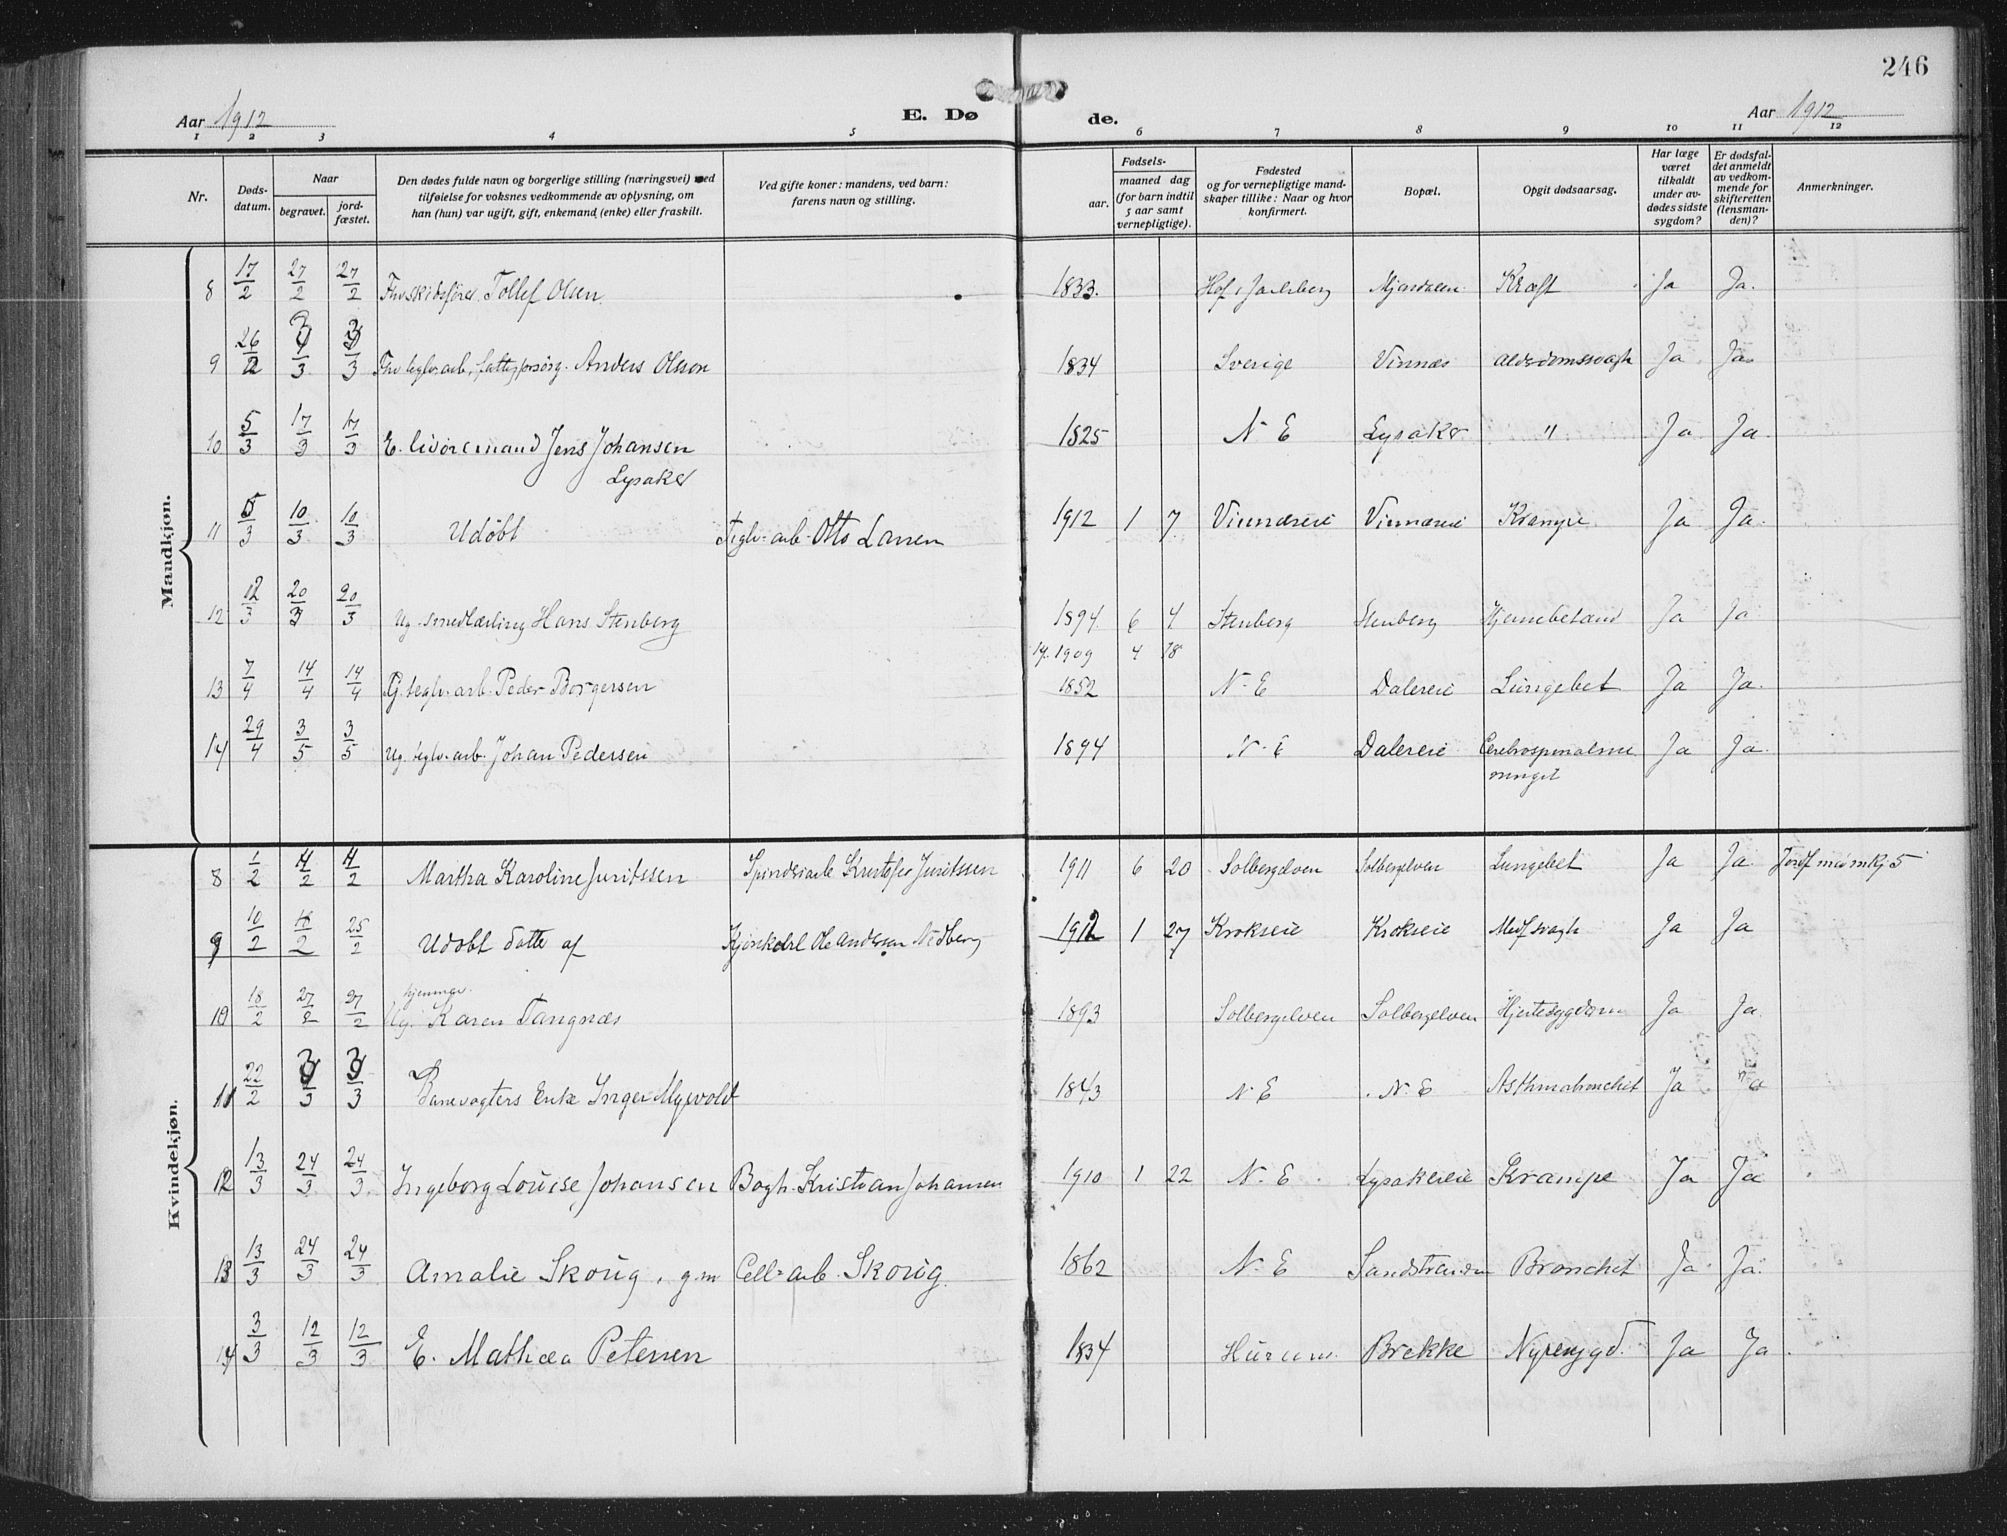 246
Aar 1912 E. Dø de. Aar 1912
1 2 3 4 5 6 7 8 9 10 11 12
Nr. Døds-datum. Naar begravet. jord-fæstet. Den dødes fulde navn og borgerlige stilling (næringsvei) med tilføielse for voksnes vedkommende av oplysning, om han (hun) var ugift, gift, enkemand (enke) eller fraskilt. Ved gifte koner: mandens, ved barn: farens navn og stilling. Fødsels- aar. maaned dag (for barn indtil 5 aar samt vernepligtige). Fødested og for vernepligtige mandskaper tillike: Naar og hvor konfirmert. Bopæl. Opgit dødsaarsag. Har læge været tilkaldt under avdødes sidste sygdom? Er dødsfaldet anmeldt av vedkommende for skifteretten (lensmanden)? Anmerkninger.
Mandkjøn.
8 17/2 27/2 27/2 Tollef Olsen 1833. Hof, Jarlsberg Mjøndalen Kræft Ja Ja.
9 26/2 3/3 3/3 Fhv. teglv.arb., fattigforsørg. Anders Olson 1834 Sverige Vinnæs Alderdomssvagh Ja Ja
10 5/3 17/3 17/3 E. livøremand Jens Johansen 1825 N E Lysaker " Ja Ja.
Lysaker
11 5/3 10/3 10/3 Udøbt Teglv-arb. Otto Larsen 1912 1 7 Vinnæseie Vinnæseie Krampe Ja Ja.
12 12/3 20/3 20/3 Ug. smedlærling Hans Stenberg 1894 6 4 Stenberg Stenberg Hjernebetænd Ja Ja
1909 4 18
13 7/4 14/4 14/4 G. teglv.arb. Peder Borgersen 1852 N-E Dalereie Lungebet Ja Ja.
14 29/4 3/5 3/5 Ug. teglv.arb. Johan Pedersen 1894 N-E Dalereie Cerebrospinalme Ja Ja.
ninget
Kvindekjøn.
8 1/2 4/2 4/2 Martha Karoline Juritssen Spinderiarb Kristofer Juritssen 1911 6 20 Solbergelven Solbergelven Lungebet Ja Ja
9 10/2 18/2 25/2 Udøbt datter af Ole Andersen Nedberg 1912 1 27 Krokseie Krokseie Medf. svagh Ja Ja
hjemmev.
10 18/2 27/2 27/2 Ug. Karen Tangnæs 1893 Solbergelven Solbergelven Hjertesygdom Ja Ja.
11 22/2 3/3 3/3 Banevogters Enke Inger Myrvold 1843 N.E N.E Asthmabronchit Ja Ja
12 13/3 24/3 24/3 Ingeborg Louise Johansen Bagh. Kristian Johansen 1910 1 22 N.E Lysakereie Krampe Ja Ja
13 13/3 24/3 24/3 Amalie Skoug, g.m Cell-arb. Skoug 1862 N.E Sandstranden Bronchit Ja Ja.
14 3/3 12/3 12/3 E. Mathea Petersen 1834 Hurum Brekke Nyresygd. Ja Ja